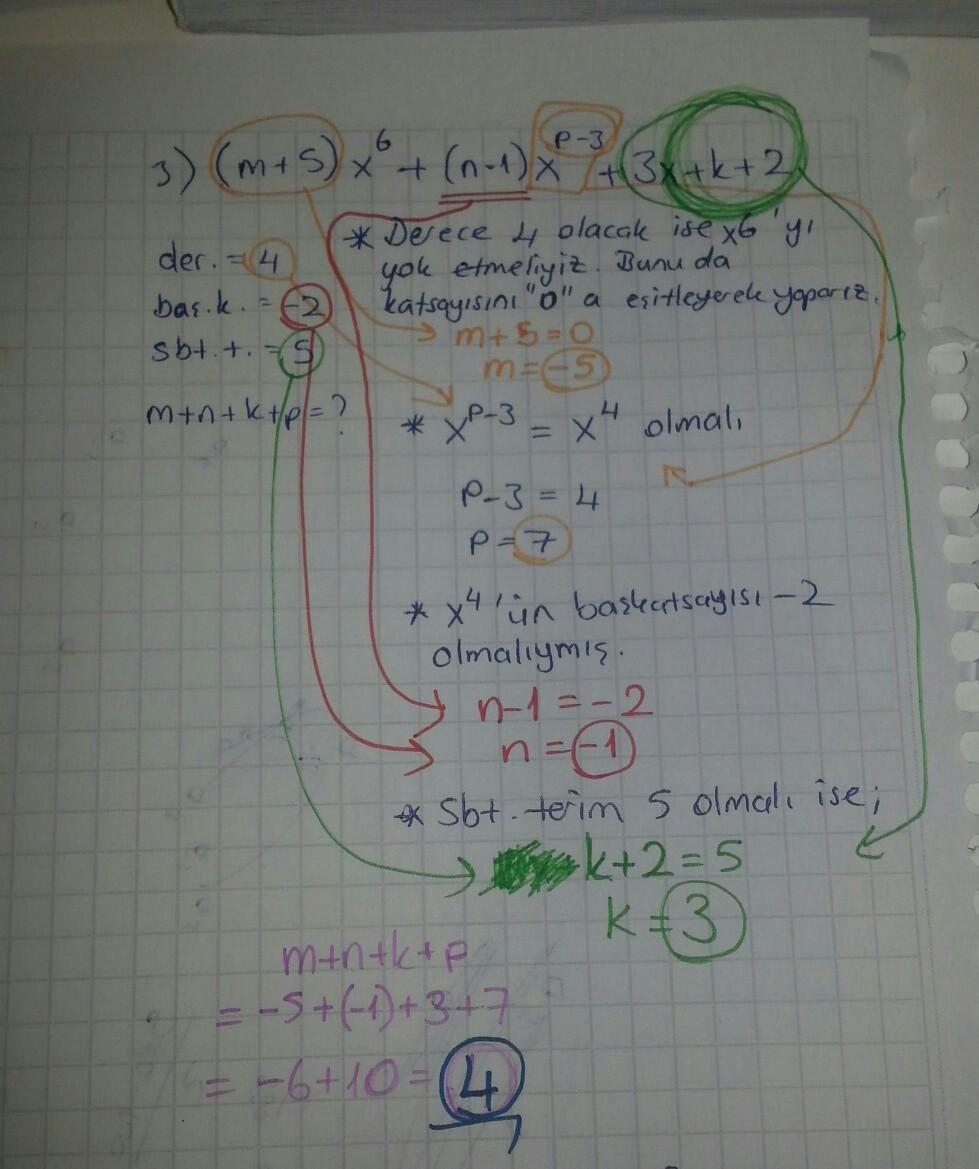 3) (m+5) x⁶ + (n-1) x^(p-3) + 3x + k + 2
der. = 4
baş.k. = -2
sbt. t. = 5
m+n+k+p = ?
* Derece 4 olacak ise x6'yı
yok etmeliyiz. Bunu da
katsayısını "0" a eşitleyerek yaparız.
m+5=0
m=-5
* x^(p-3) = x⁴ olmalı
p-3 = 4
p = 7
* x⁴'ün başkatsayısı -2
olmalıymış.
n-1 = -2
n = -1
* Sbt. terim 5 olmalı ise;
k+2=5
k=3
m+n+k+p
= -5+(-1)+3+7
= -6+10 = 4